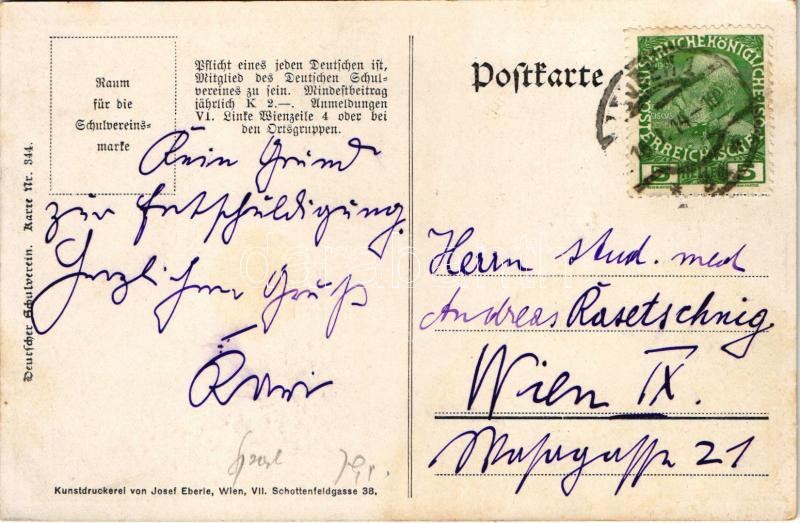 Raum
für die
Schulvereins-
marke
Pflicht eines jeden Deutschen ist,
Mitglied des Deutschen Schul-
vereines zu sein. Mindestbeitrag
jährlich K 2.—. Anmeldungen
VI. Linke Wienzeile 4 oder bei
den Ortsgruppen.
Deutscher Schulverein. Karte Nr. 344.
Kein Grund
zur Entschuldigung.
Herzlichen Gruß
Kunstdruckerei von Josef Eberle, Wien, VII. Schottenfeldgasse 38.
Postkarte
5 HELLER 5
Herrn stud. med
Andreas Rasetschnig
Wien IX.
Wasagasse 21